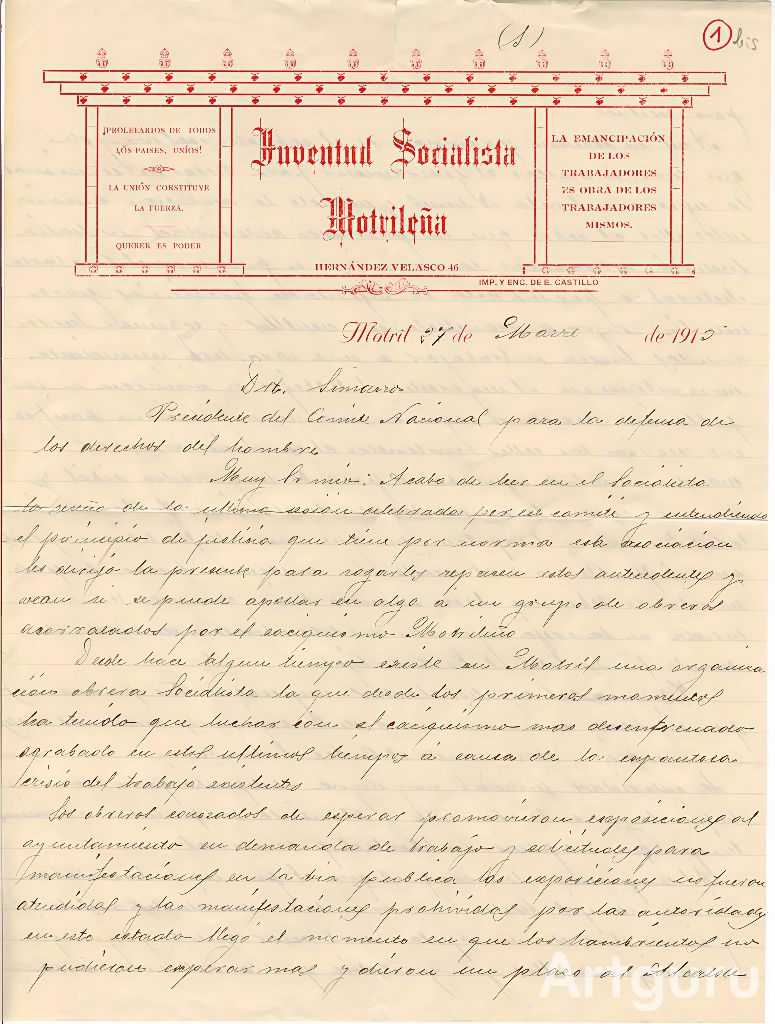 (1)
1 bis
¡PROLETARIOS DE TODOS
LOS PAISES, UNÍOS!
LA UNIÓN CONSTITUYE
LA FUERZA.
QUERER ES PODER
Juventud Socialista
Motrileña
HERNÁNDEZ VELASCO 46
LA EMANCIPACIÓN
DE LOS
TRABAJADORES
ES OBRA DE LOS
TRABAJADORES
MISMOS.
IMP. Y ENC. DE E. CASTILLO
Motril 27 de Marzo de 1915
Dr. Simarro
Presidente del Comite Nacional para la defensa de
los derechos del hombre
Muy Sr mio: Acabo de leer en el Socialista
la reseña de la ultima sesión celebrada por ese comité y entendiendo
el principio de justicia que tiene por norma esta asociacion
les dirijo la presente para rogarles repasen estos antecedentes y
vean si se puede apollar en algo á un grupo de obreros
acorralados por el caciquismo Motrileño
Desde hace algun tiempo existe en Motril una organiza
ción obrera Socialista la que desde los primeros momentos
ha tenido que luchar con el caciquismo mas desenfrenado
agrabado en estos ultimos tiempos á causa de la espantosa
crisis del trabajo existentes
Los obreros cansados de esperar promovieron exposiciones al
ayuntamiento en demanda de trabajo y solicitudes para
manifestaciones en la via publica las exposiciones no fueron
atendidas y las manifestaciones prohividas por las autoridades
en este estado llegó el momento en que los hambrientos no
pudieron esperar mas y dieron un plazo al Alcalde
Artguru